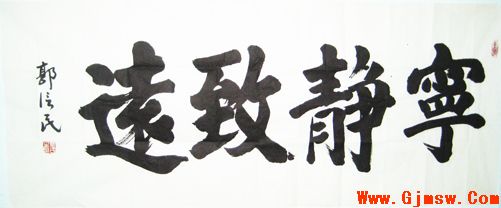 寧靜致遠
郭信民
Www.Gjmsw.Com